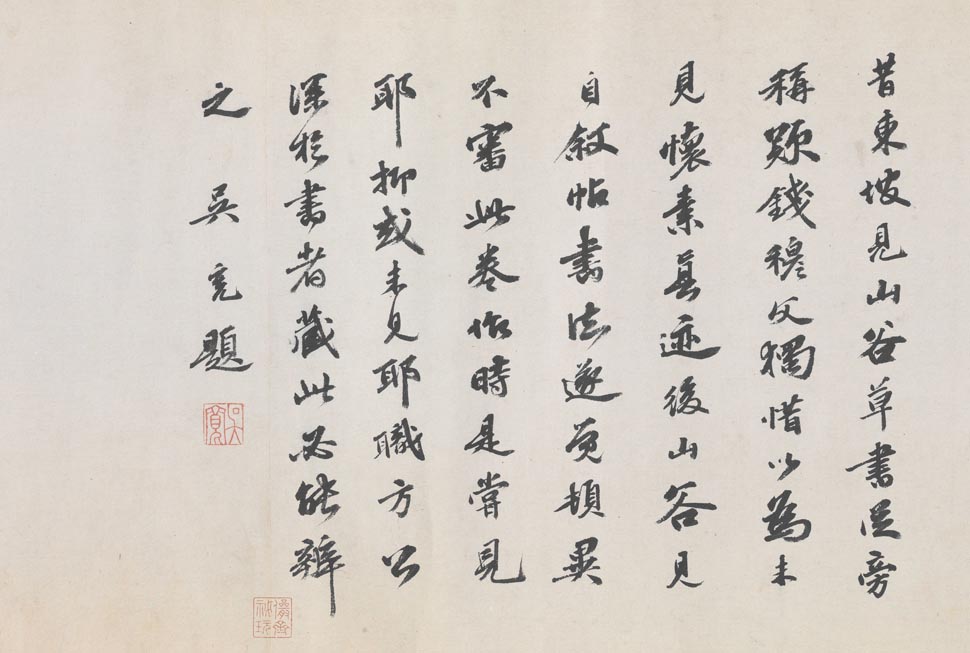 昔東坡見山谷草書從旁
稱賢錢穆父獨惜以為未
見懷素真迹後山谷見
自敘帖書法遂覺頓異
不審此卷作時是嘗見
耶抑或未見耶職方公
深於書者藏此必能辨
之 吳寬題
吳寬